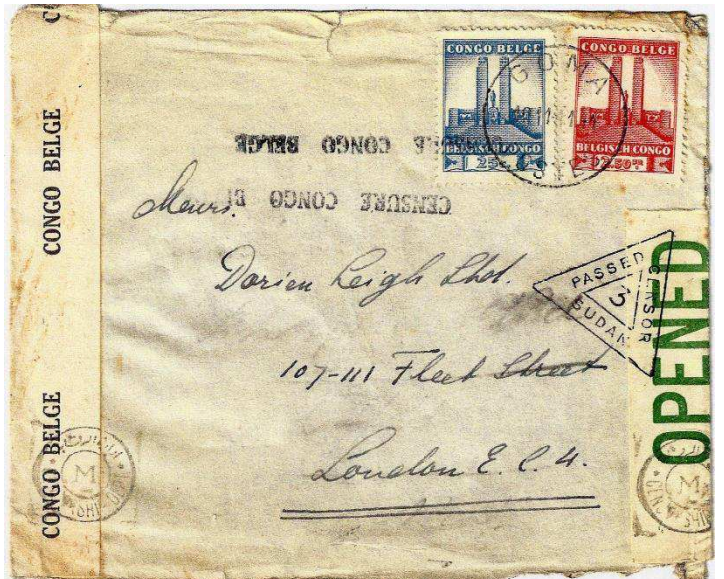 CONGO BELGE
CONGO BELGE
CONGO BELGE
BELGISCH CONGO
CONGO BELGE
BELGISCH CONGO
GOMA
CONGO BELGE
CENSURE CONGO
Messrs.
Dorien Leigh Ltd.
107-111 Fleet Street
London E.C.4.
PASSED
CENSOR
SUDAN
3
OPENED
M
M